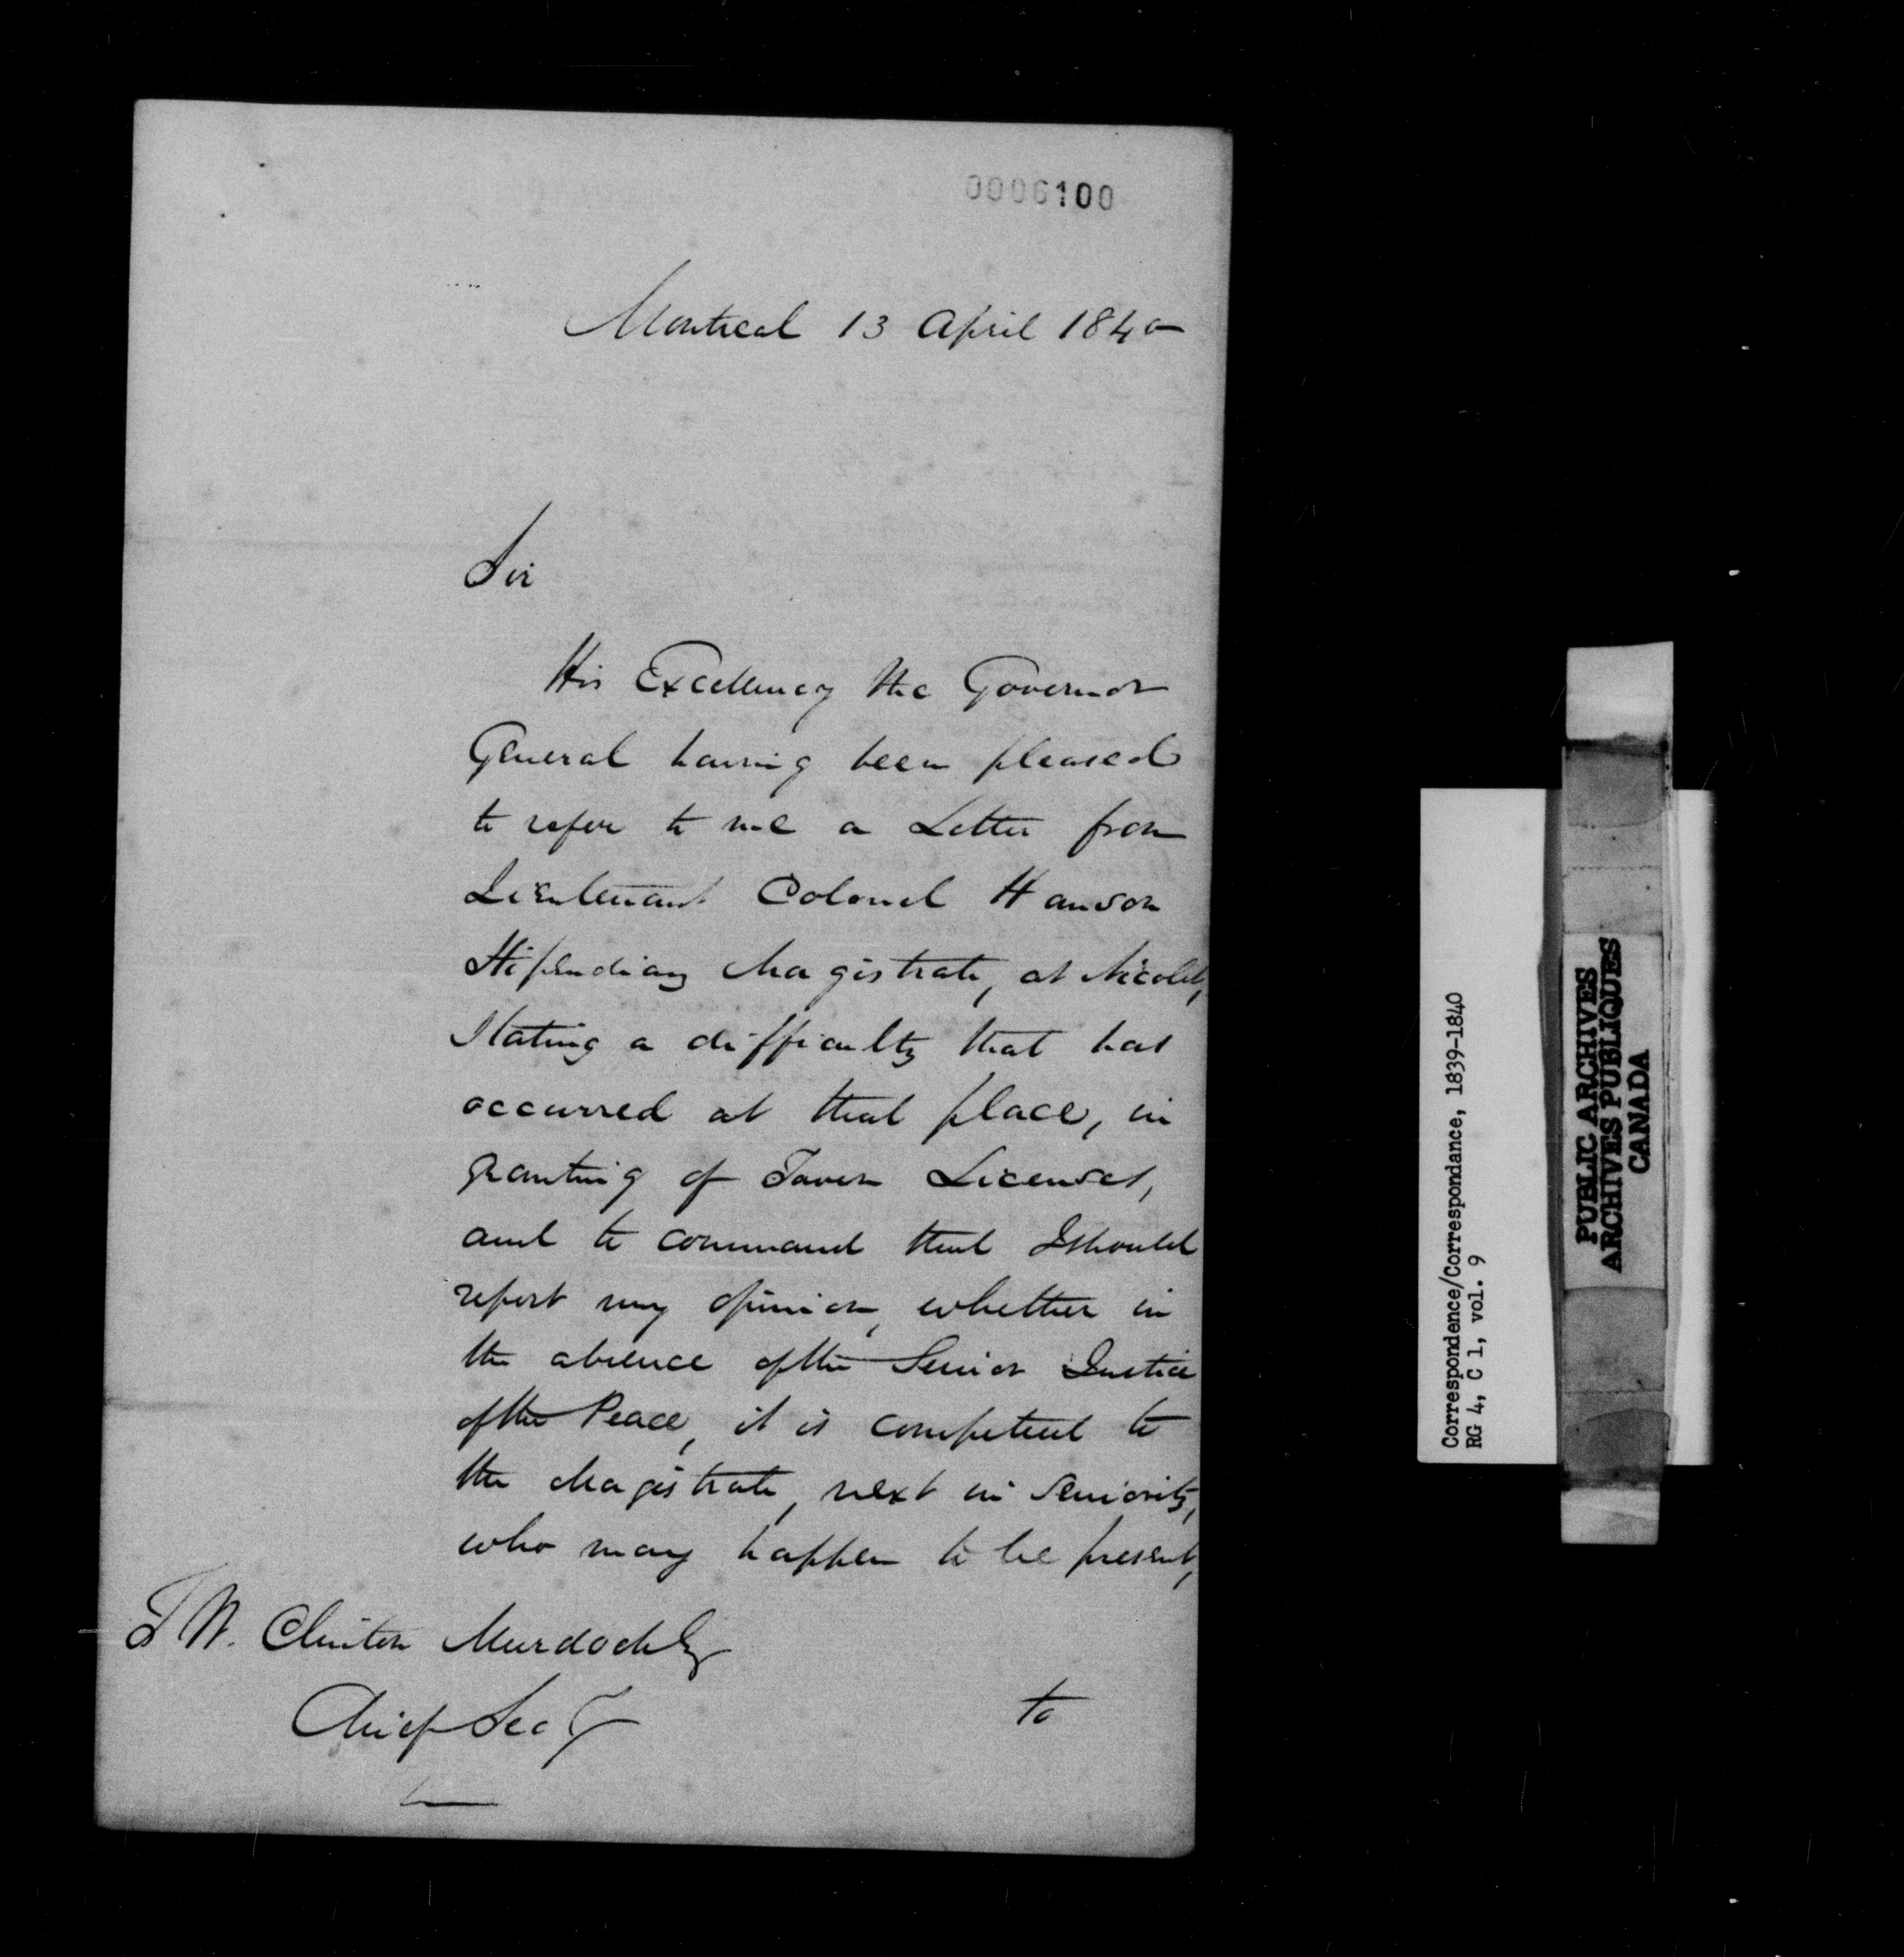 0006100
Montreal 13 April 1840
Sir
His Excellency the Governor
General having been pleased
to refer to me a Letter from
Lieutenant Colonel Hanson
Stipendiary Magistrate, at Nicolet,
Stating a difficulty that has
occurred at that place, in
granting of Tavern Licenses,
and to command that I should
report my opinion, whether in
the absence of the Senior Justice
of the Peace, it is competent to
the Magistrate, next in seniority,
who may happen to be present,
T W. Clinton Murdoch Esq
Chief Secy
to
Correspondence/Correspondance, 1839-1840
RG 4, C 1, vol. 9
PUBLIC ARCHIVES
ARCHIVES PUBLIQUES
CANADA